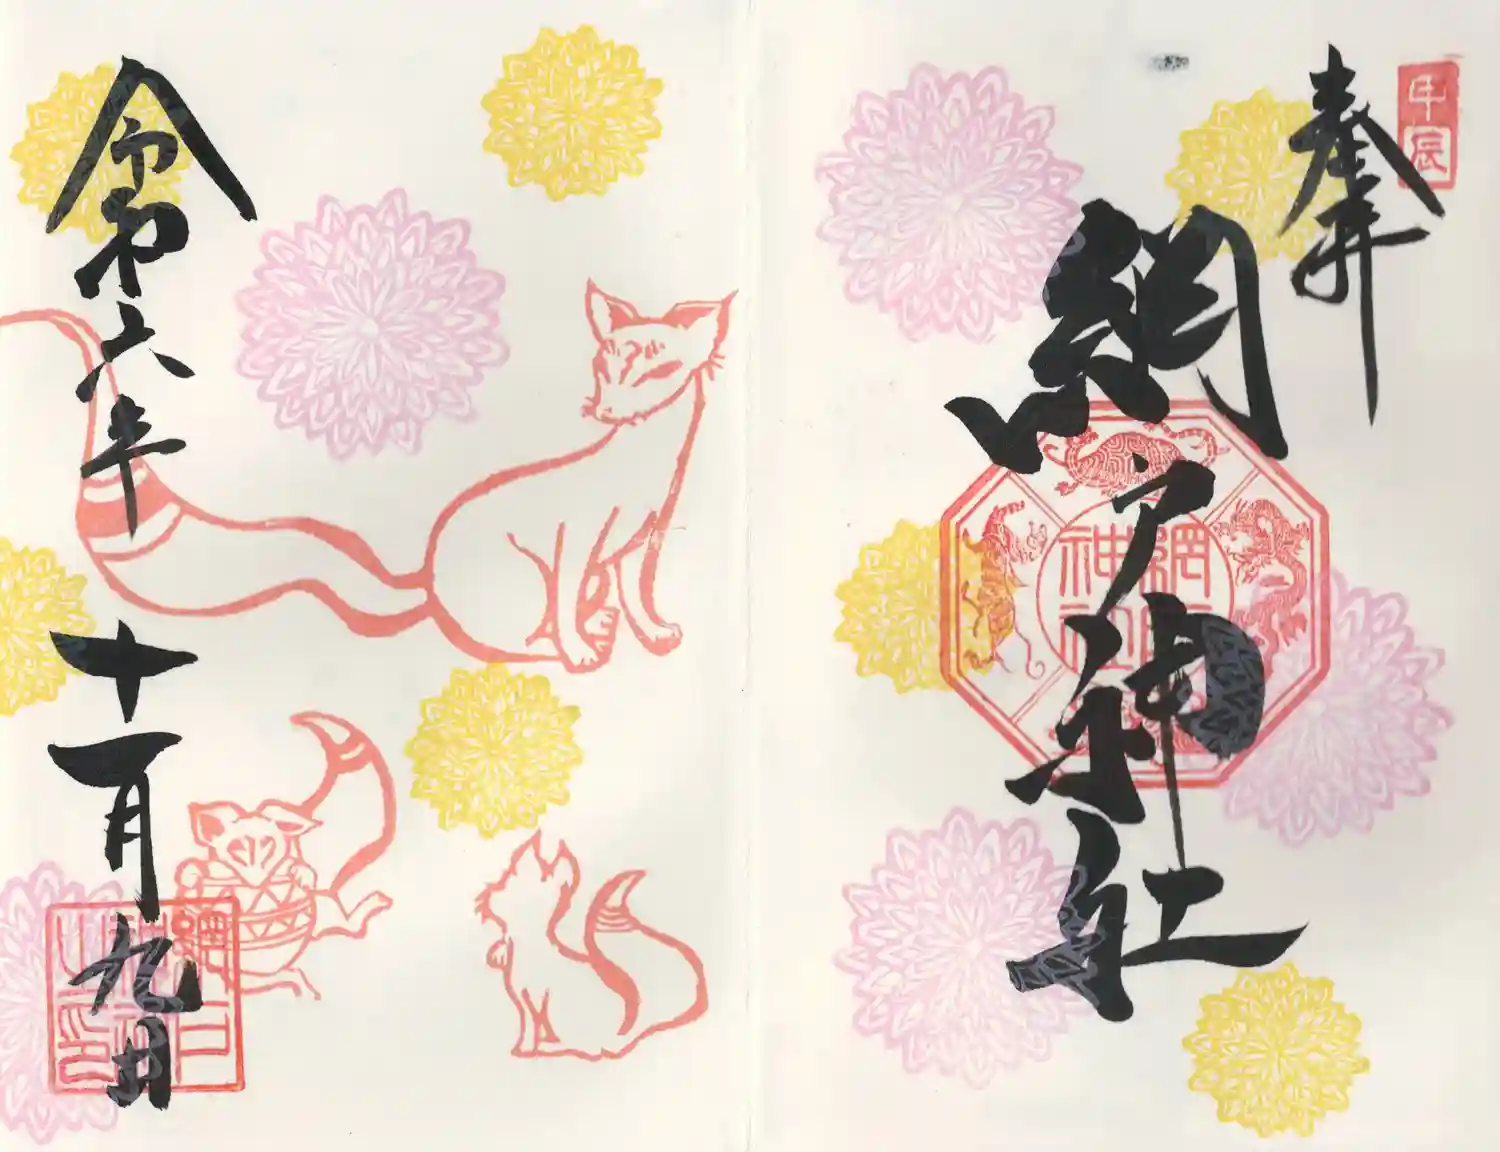 甲辰
奉拝
網戸神社
網戸
神社
令和六年
十一月九日
網戸
神社
之印